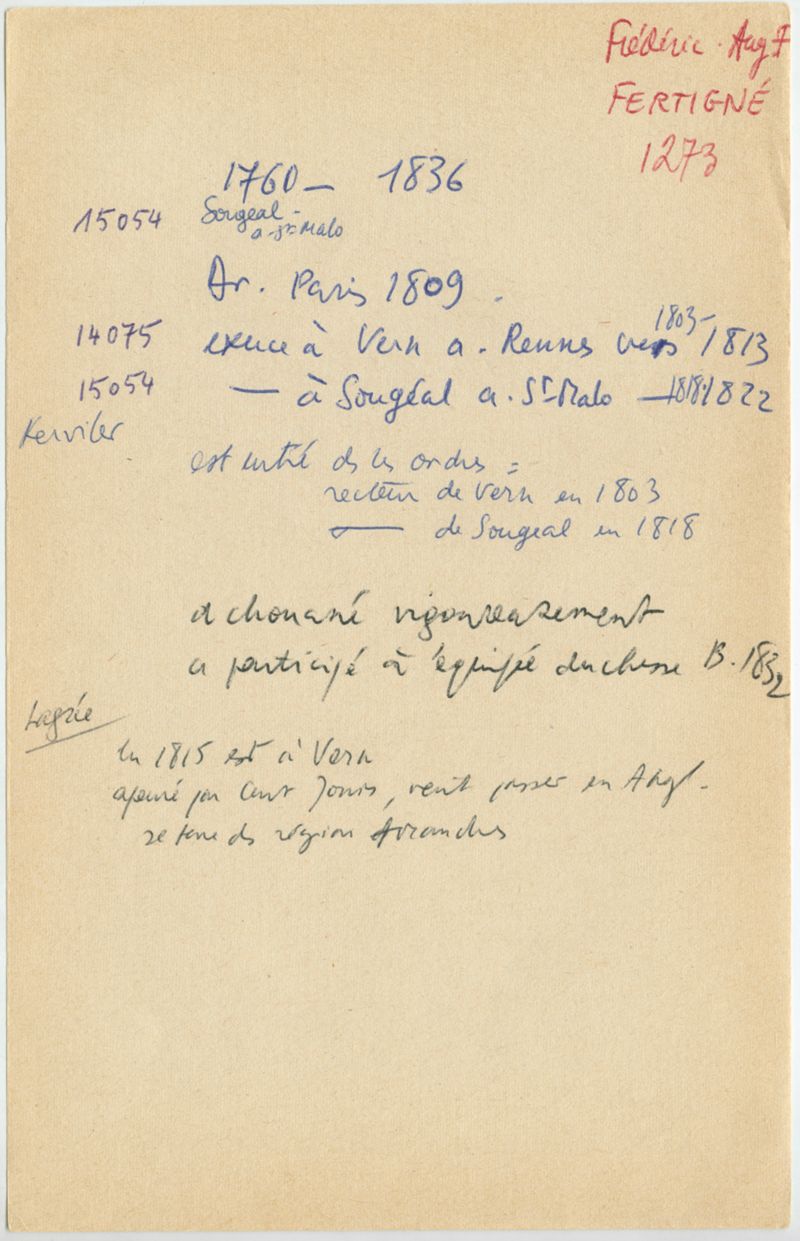 Frédéric. Aug F
FERTIGNÉ
1273
1760 — 1836
15054 Sougéal -
a. St Malo
Ar. Paris 1809.
1803-
14075 exerce à Vern a. Rennes vers 1813
15054 — à Sougéal a. St Malo — 1818. 1822
Kerviler
est entré ds les ordres =
recteur de Vern en 1803
— de Sougeal en 1818
a chouané vigoureusement
a participé à équipée duchesse B. 1832
Lagrée
en 1815 est à Vern
par Cent Jours, veut passer en Angl.
se terre ds région Avranches